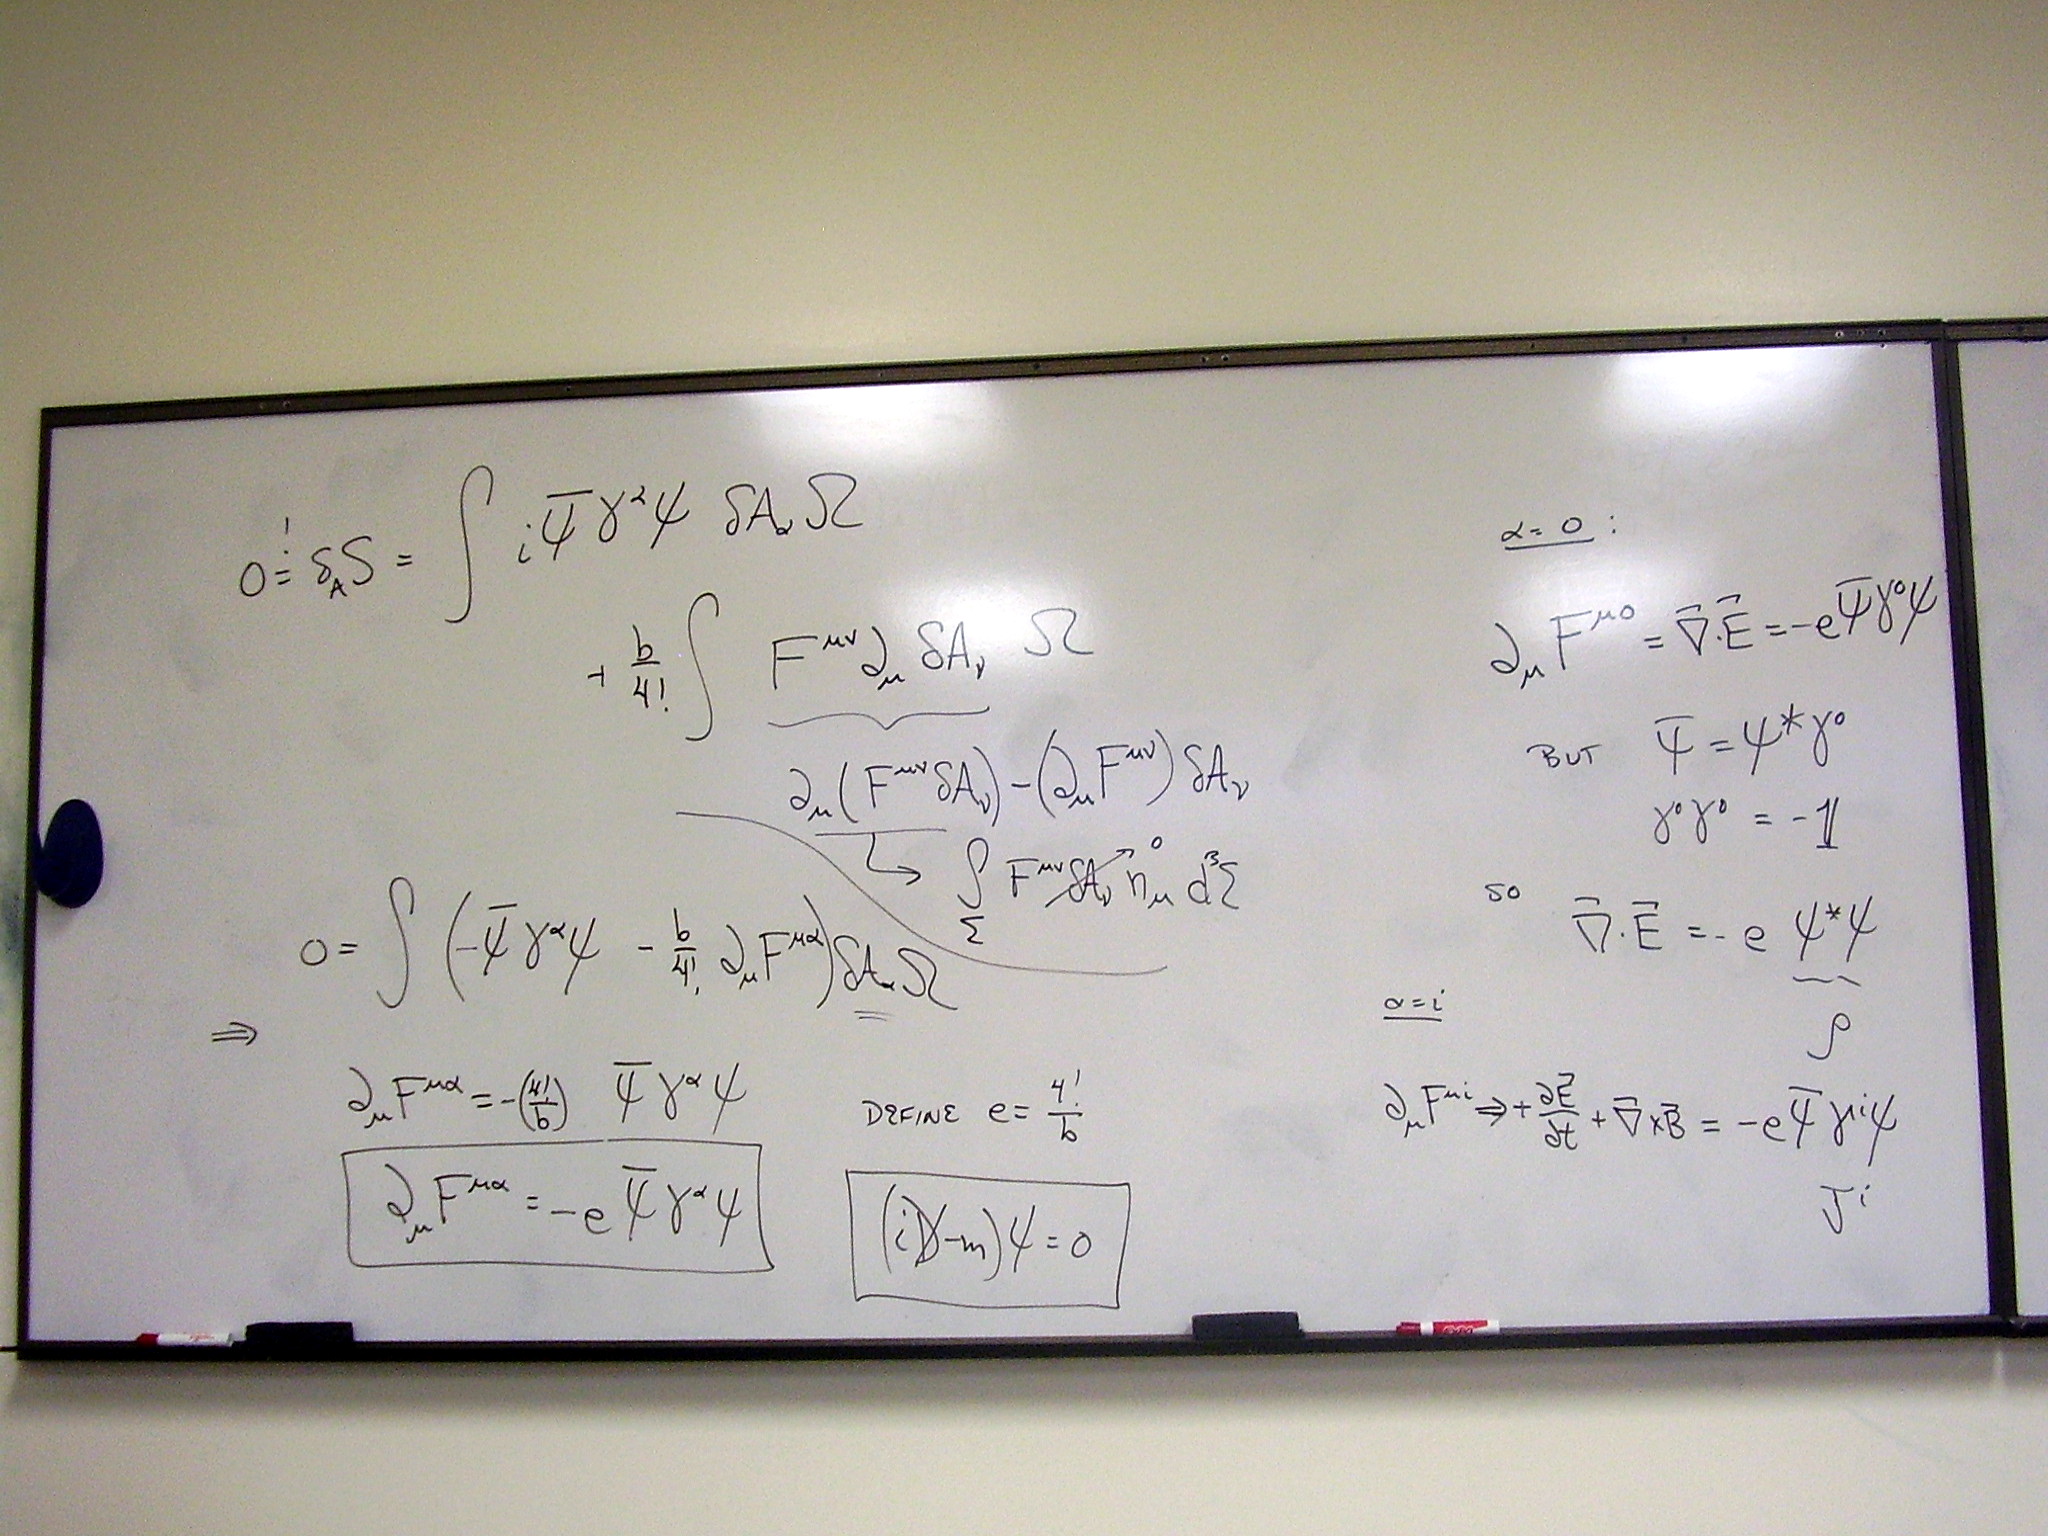 0 =! δ_A S = ∫ i Ψ̄ γ^α ψ δA_α Ω
+ b/4! ∫ F^{μν} ∂_μ δA_ν Ω
∂_μ (F^{μν} δA_ν) - (∂_μ F^{μν}) δA_ν
↳ ∫_Σ F^{μν} δA_ν → 0 n_μ d³Σ
0 = ∫ (-Ψ̄ γ^α ψ - b/4! ∂_μ F^{μα}) δA_α Ω
⇒
∂_μ F^{μα} = -(4!/b) Ψ̄ γ^α ψ
DEFINE e = 4!/b
∂_μ F^{μα} = -e Ψ̄ γ^α ψ
(iD̸ - m) ψ = 0
α = 0 :
∂_μ F^{μ0} = ∇⃗·E⃗ = -e Ψ̄ γ⁰ ψ
BUT Ψ̄ = ψ* γ⁰
γ⁰ γ⁰ = -𝟙
SO ∇⃗·E⃗ = - e ψ*ψ
ρ
α = i
∂_μ F^{μi} ⇒ + ∂E⃗/∂t + ∇⃗ × B⃗ = -e Ψ̄ γ^i ψ
J^i